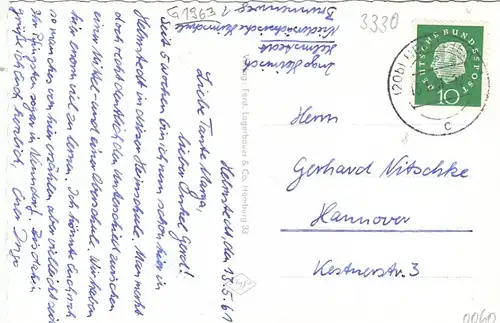 Helmstedt, den 13.5.61
Liebe Tante Marga,
lieber Onkel Gerd!
Seit 5 wochen bin ich nun schon hier in
Helmstedt in dieser Heimschule. Man merkt
doch recht deutlich den Unterschied zwischen
einer Mittel- und einer Oberschule. Wir haben
hier enorm viel zu lernen. Ich könnte Euch noch
so manches von hier erzählen aber vielleicht sei
zu Pfingsten sogar in Nenndorf. Bis dahin
grüßt Euch herzlich, Eure Inge
Inge Heinrich
Helmstedt
Niedersächsische Heimschule
Brunnenweg 1
G 1963
3330
Verlag: Ferd. Lagerbauer & Co., Hamburg 33
DEUTSCHE BUNDESPOST
10
(20b) HE
c
Herrn
Gerhard Nitschke
Hannover
Kestnerstr. 3
0060